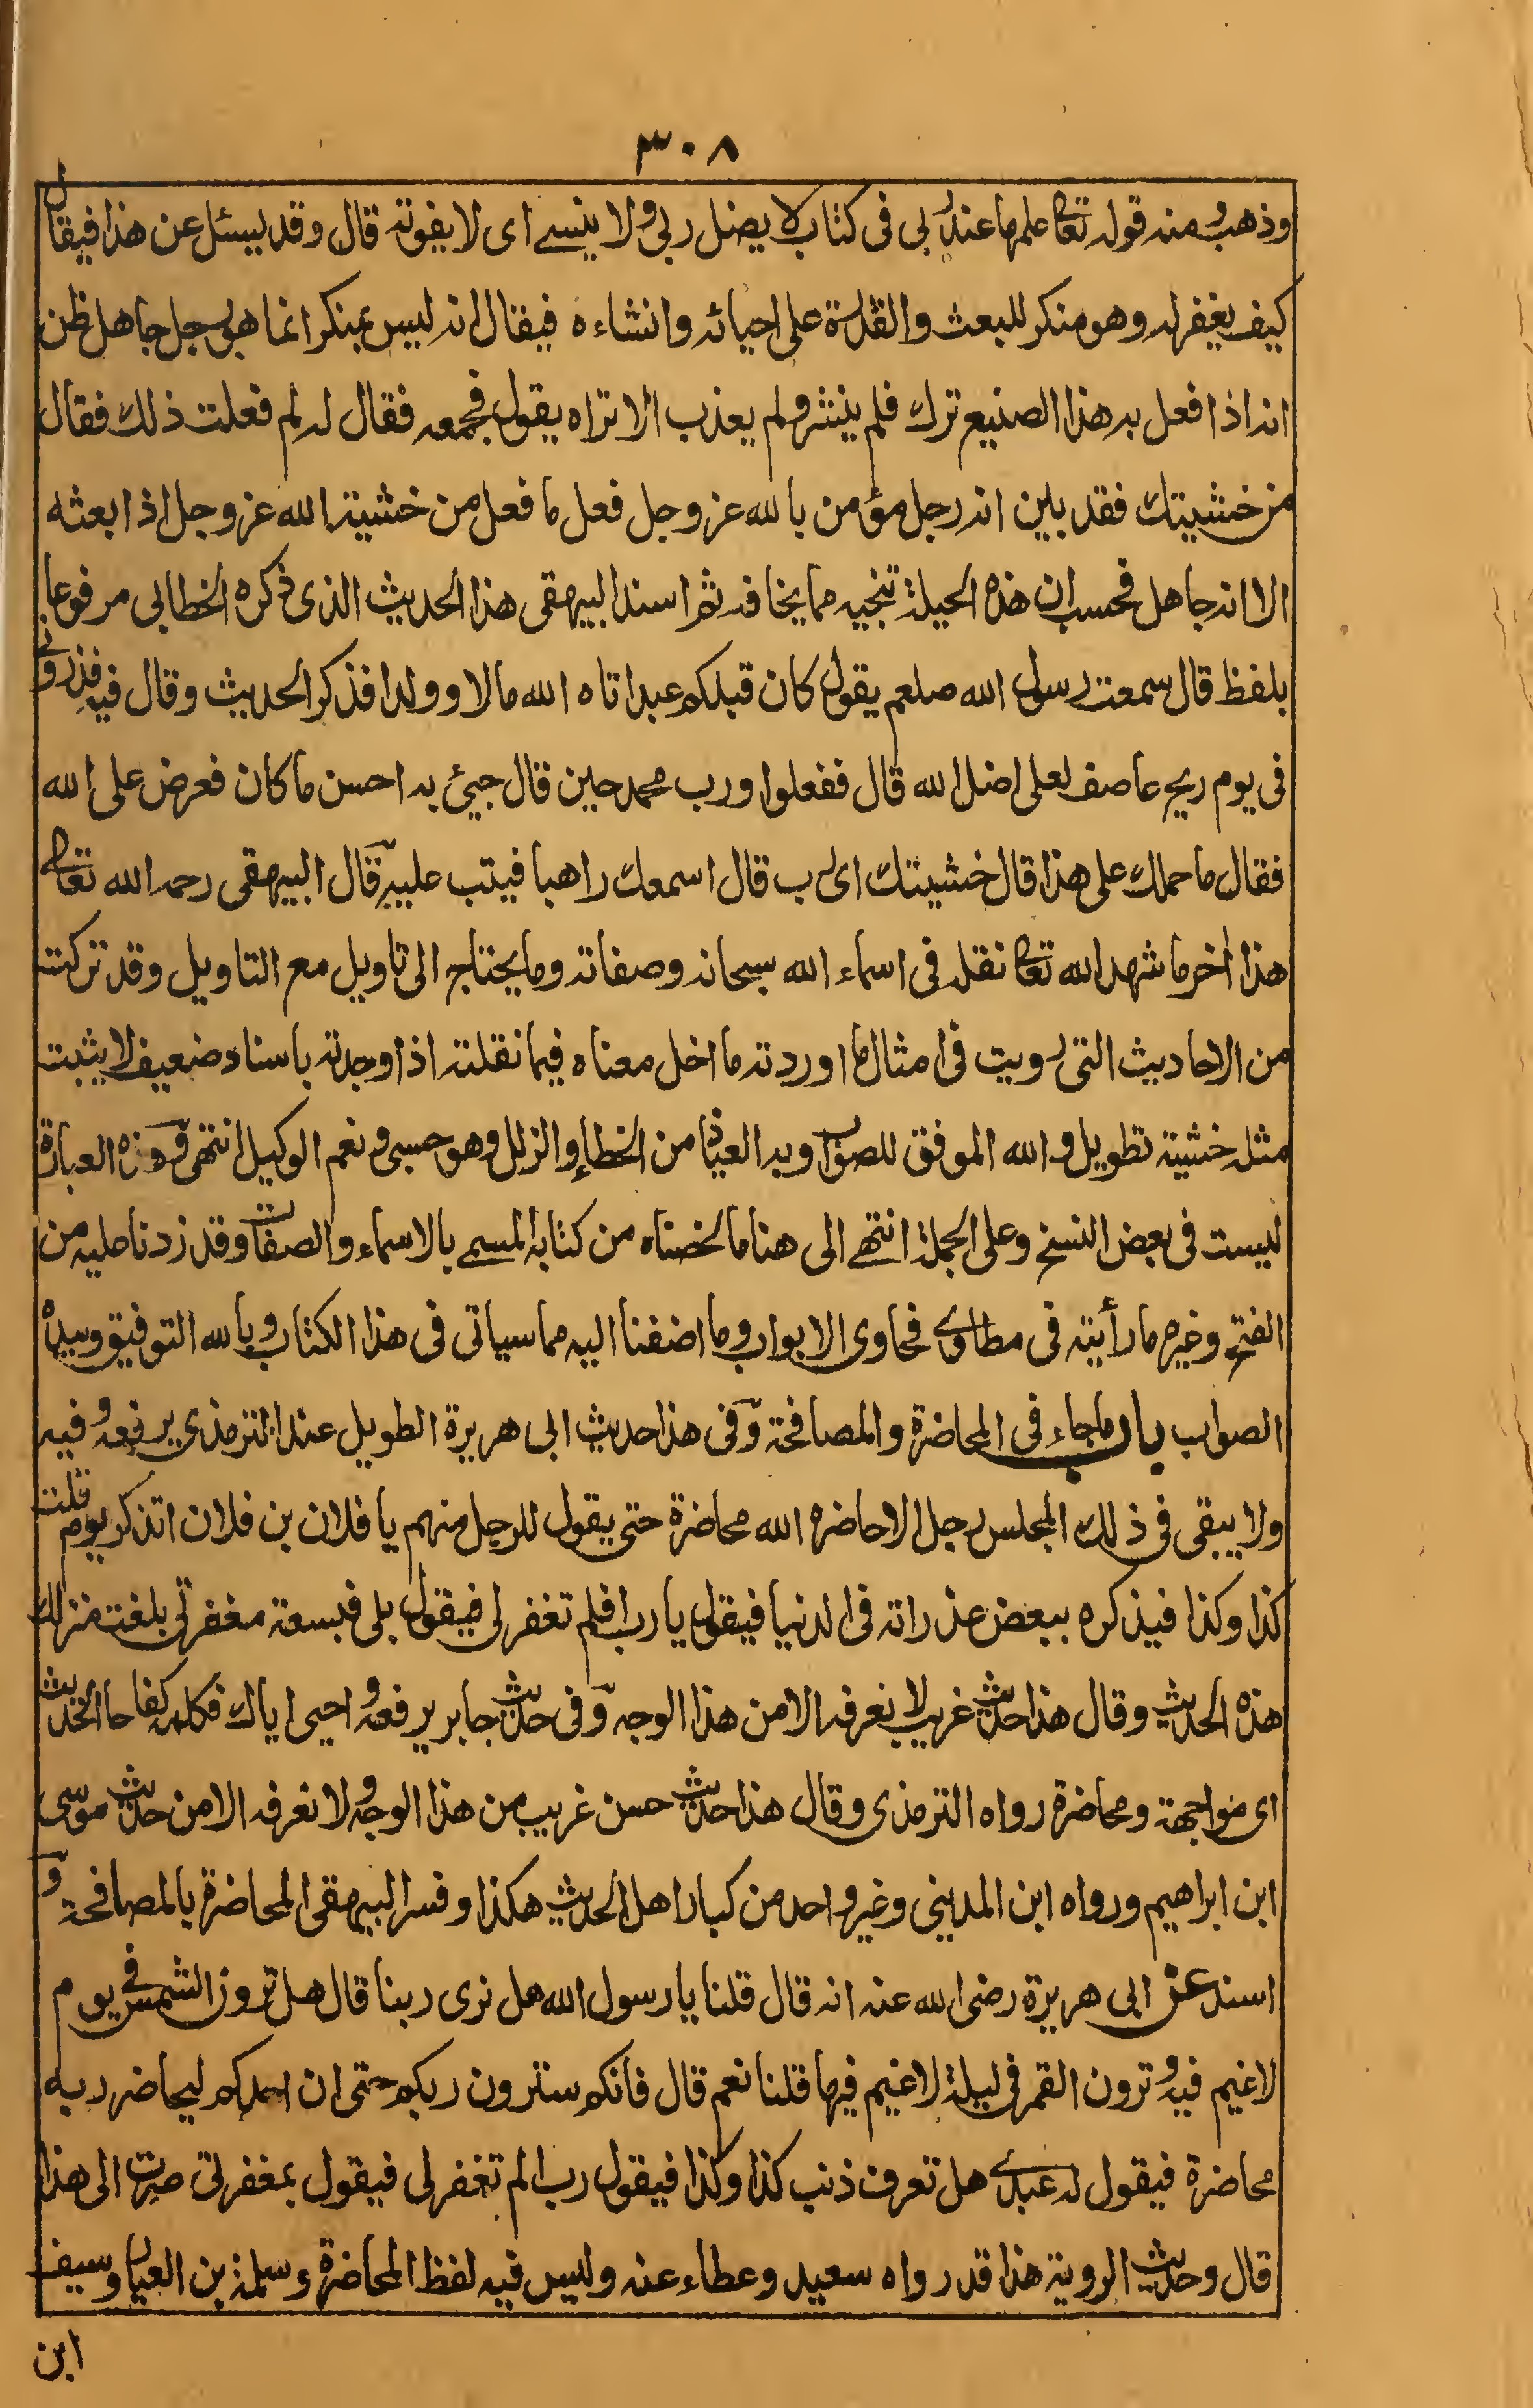 ٣٠٨
وذهب ومنه قوله تعا علمها عند ربى فى كتاب لا يضل ربى ولا ينسى اى لا يفوته قال وقد يسئل عن هذا فيقال
كيف يغفر له وهو منكر للبعث والقدرة على احيائه وانشاءه فيقال انه ليس بمنكر انما هو رجل جاهل ظن
انه اذا فعل به هذا الصنيع ترك فلم ينشر ولم يعذب الا تراه يقول فجمعه فقال له لم فعلت ذلك فقال
من خشيتك فقد بين انه رجل مؤمن بالله عز وجل فعل ما فعل من خشية الله عز وجل اذا بعثه
الا انه جاهل فحسب ان هذه الحيلة تنجيه مما يخافه ثم اسند البيهقى هذا الحديث الذى ذكره الخطابى مرفوعا
بلفظ قال سمعت رسول الله صلعم يقول كان قبلكم عبد اتاه الله مالا وولدا فذكر الحديث وقال فيه فذرونى
فى يوم ريح عاصف لعلى اضل الله قال ففعلوا ورب محمد حين قال جيئ به احسن ما كان فعرض على الله
فقال ما حملك على هذا قال خشيتك اى رب قال اسمعك راهبا فيتب عليه قال البيهقى رحمه الله تعا
هذا اخر ما شهد الله تعا نقله فى اسماء الله سبحانه وصفاته وما يحتاج الى تاويل مع التاويل وقد تركت
من الاحاديث التى رويت فى امثال ما اوردته ما اخل معناه فيما نقلته اذا وجدته باسناد ضعيف لا يثبت
مثله خشية تطويل والله الموفق للصواب وبه العياذ من الخطاء والزلل وهو حسبى ونعم الوكيل انتهى وهذه العبارة
ليست فى بعض النسخ وعلى الجملة انتهے الى هنا ما لخصناه من كتابه المسمے بالاسماء والصفات وقد زدنا عليه من
الفتح وغيره ما رأيته فى مطاوے فحاوى الابواب وما اضفنا اليه مما سياتى فى هذا الكتاب وبالله التوفيق وبيده
الصواب باب ما جاء فى المحاضرة والمصافحة وفى هذا حديث ابى هريرة الطويل عند الترمذى يرفعه وفيه
ولا يبقى فى ذلك المجلس رجل الا حاضره الله محاضرة حتى يقول للرجل منهم يا فلان بن فلان اتذكر يوم قلت
كذا وكذا فيذكره ببعض غدراته فى الدنيا فيقول يا رب افلم تغفر لى فيقول بلى فبسعة مغفرتى بلغت منزلتك
هذه الحديث وقال هذا حديث غريب لا نعرفه الا من هذا الوجه وفى حديث جابر يرفعه واحيى اباك فكلمه كفاحا الحديث
اى مواجهة ومحاضرة رواه الترمذى وقال هذا حديث حسن غريب من هذا الوجه ولا نعرفه الا من حديث موسى
ابن ابراهيم ورواه ابن المدينى وغير واحد من كبار اهل الحديث هكذا وفسر البيهقى المحاضرة بالمصافحة و
اسند عن ابى هريرة رضى الله عنه انه قال قلنا يا رسول الله هل نرى ربنا قال هل ترون الشمس فى يوم
لا غيم فيه وترون القمر فى ليلة لا غيم فيها قلنا نعم قال فانكم سترون ربكم حتى ان احدكم ليحاضر ربه
محاضرة فيقول له عبدے هل تعرف ذنب كذا وكذا فيقول رب الم تغفر لى فيقول بمغفرتى صرت الى هذا
قال وحديث الروية هذا قد رواه سعيد وعطاء عنه وليس فيه لفظ المحاضرة وسلمة بن العيار وسيف
ابن